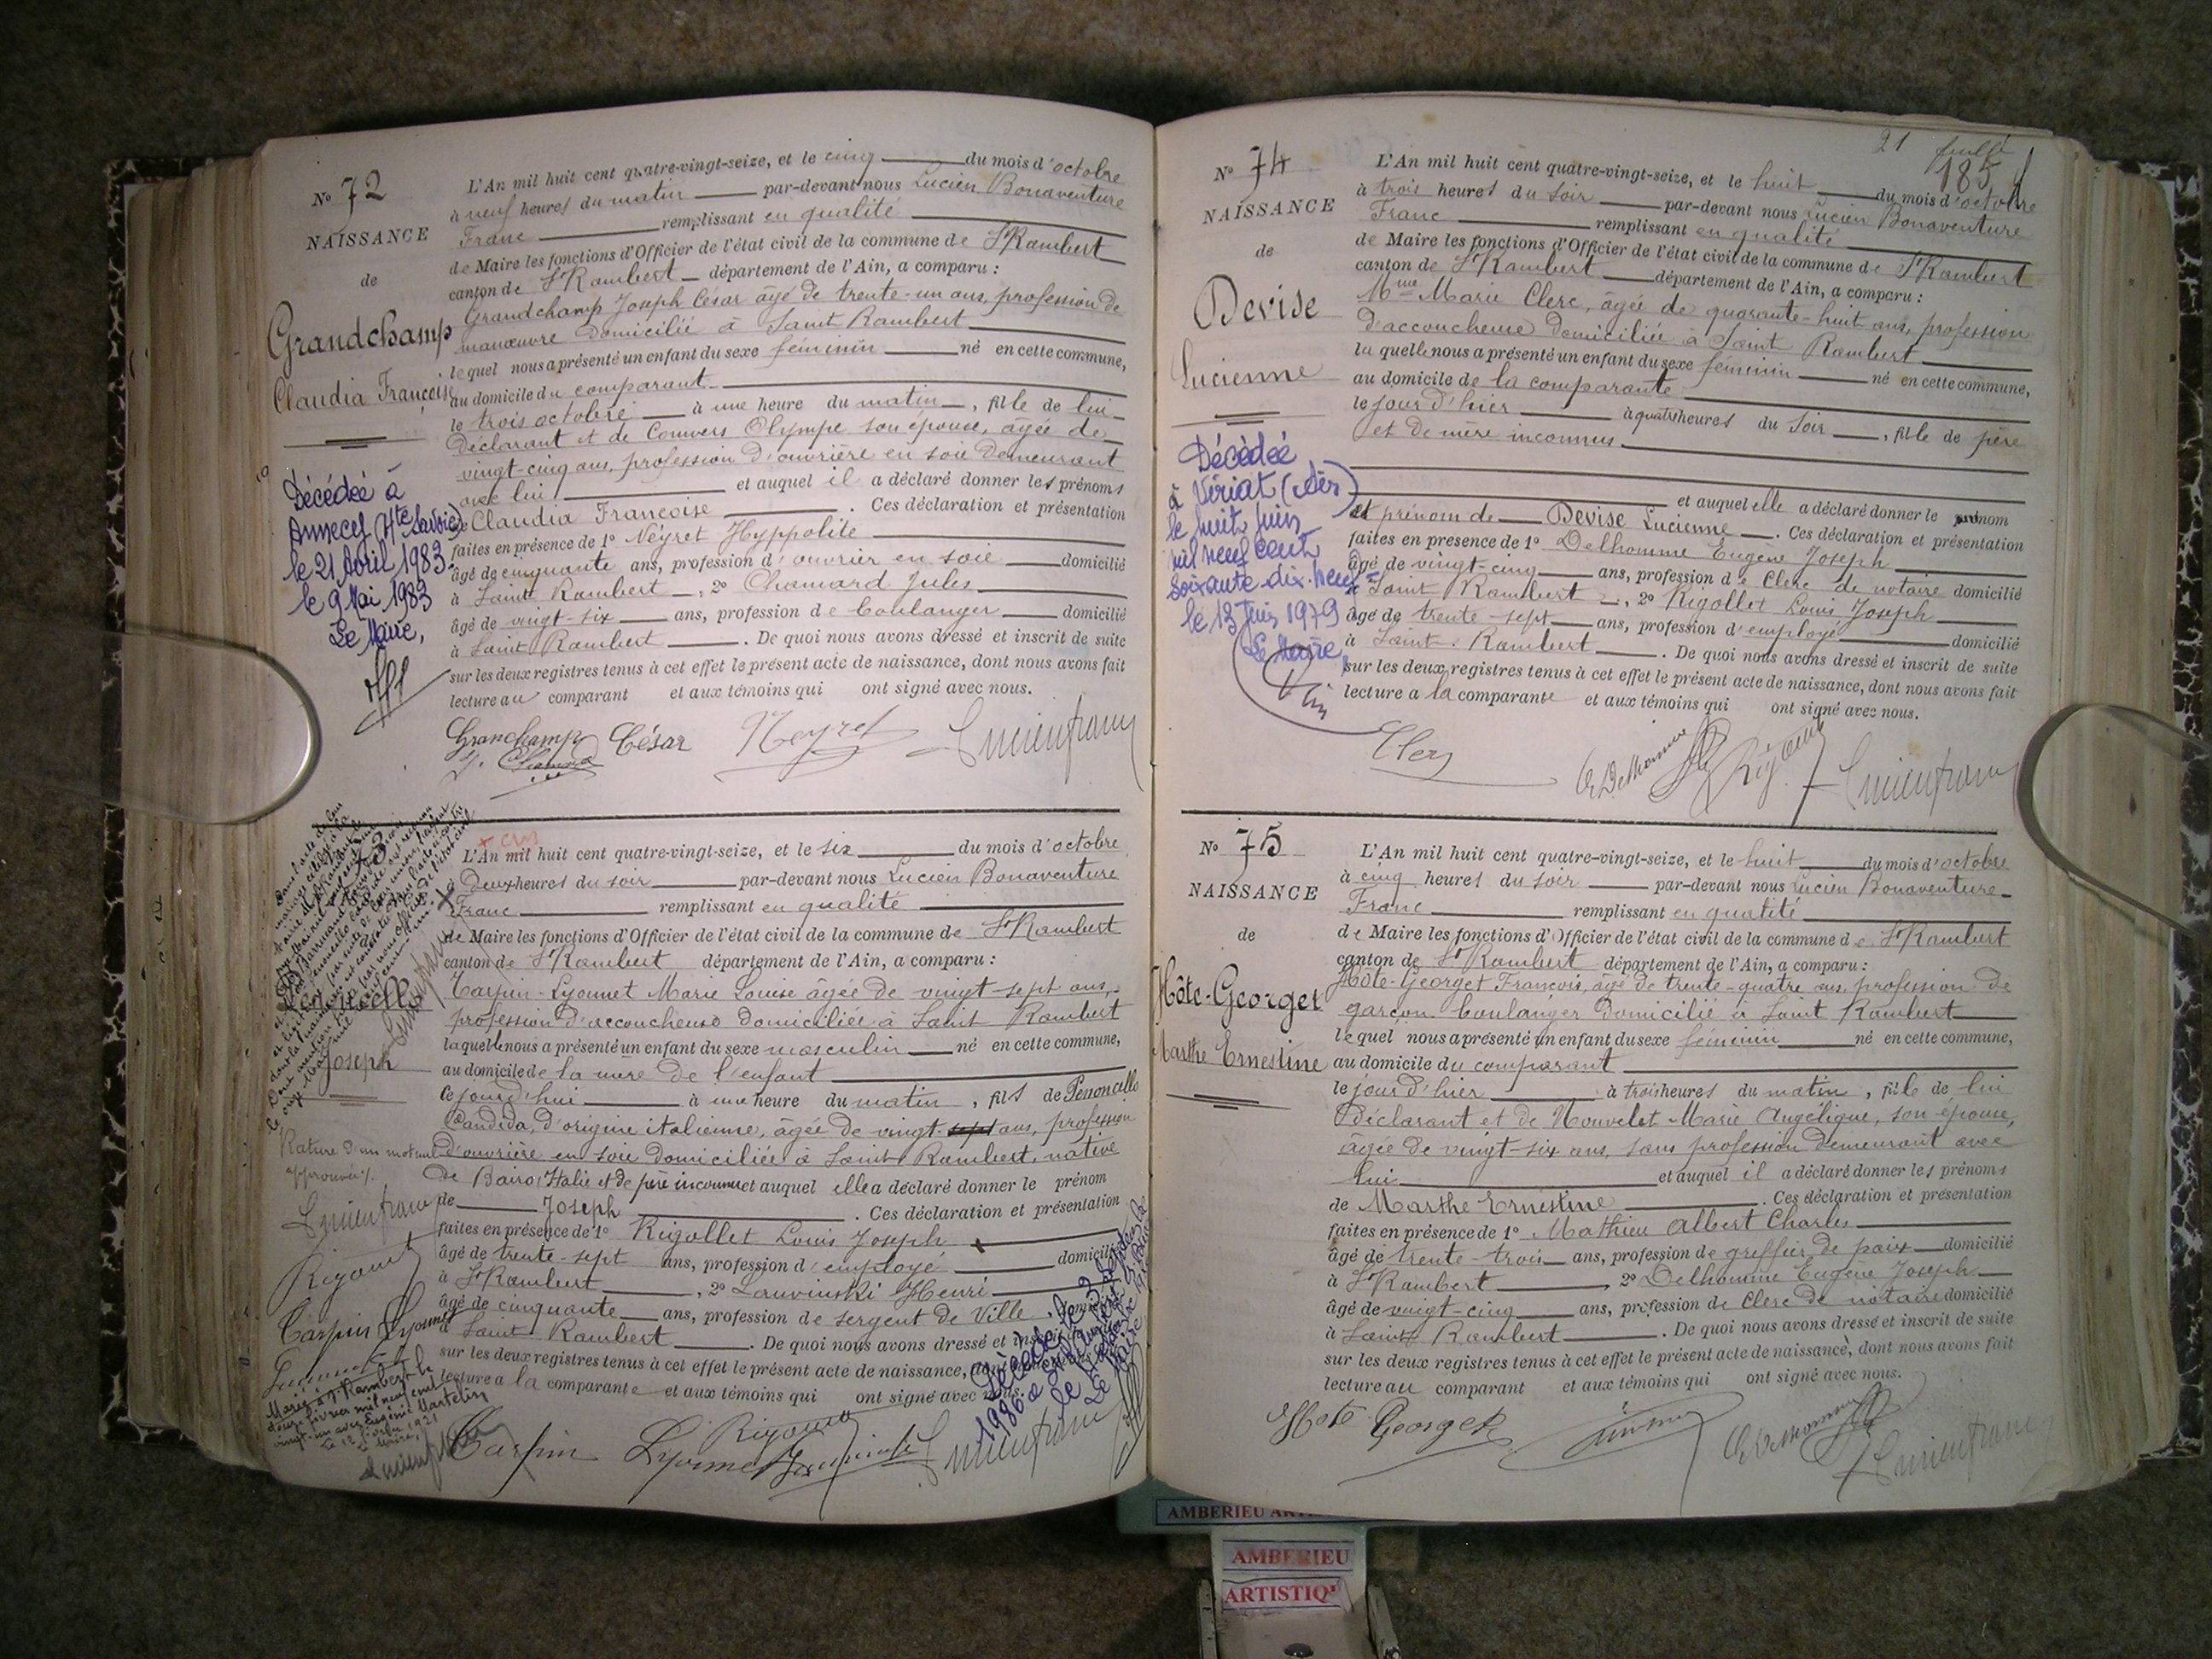 No 72
NAISSANCE
de
Grandchamp
Claudia Françoise
Décédée à
Annecy (Hte Savoie)
le 21 Avril 1983.
le 9 Mai 1983
Le Maire,
L'An mil huit cent quatre-vingt-seize, et le cinq du mois d'octobre
à neuf heures du matin par-devant nous Lucien Bonaventure
Franc remplissant en qualité
de Maire les fonctions d'Officier de l'état civil de la commune de St Rambert
canton de St Rambert département de l'Ain, a comparu :
Grandchamp Joseph César âgé de trente-un ans, profession de
manœuvre domicilié à Saint Rambert
lequel nous a présenté un enfant du sexe féminin né en cette commune,
au domicile du comparant
le trois octobre à une heure du matin, fille de lui
déclarant et de Convers Olympe son épouse, âgée de
vingt-cinq ans, profession d'ouvrière en soie demeurant
avec lui et auquel il a déclaré donner les prénoms
de Claudia Françoise. Ces déclaration et présentation
faites en présence de 1º Neyret Hyppolite
âgé de cinquante ans, profession d'ouvrier en soie domicilié
à Saint Rambert, 2º Chamard Jules
âgé de vingt-six ans, profession de boulanger domicilié
à Saint Rambert. De quoi nous avons dressé et inscrit de suite
sur les deux registres tenus à cet effet le présent acte de naissance, dont nous avons fait
lecture au comparant et aux témoins qui ont signé avec nous.
Granchamp César Neyret Lucien franc
J. Chamard
73
Joseph
Rature d'un mot nul
approuvée
Lucien franc
Carpin Lyonnet
Marié à St Rambert le
douze février mil neuf cent
vingt-un avec Eugénie Martelin
L'An mil huit cent quatre-vingt-seize, et le six du mois d'octobre
à deux heures du soir par-devant nous Lucien Bonaventure
Franc remplissant en qualité
de Maire les fonctions d'Officier de l'état civil de la commune de St Rambert
canton de St Rambert département de l'Ain, a comparu :
Carpin-Lyonnet Marie Louise âgée de vingt-sept ans,
profession d'accoucheuse domiciliée à Saint Rambert
laquelle nous a présenté un enfant du sexe masculin né en cette commune,
au domicile de la mère de l'enfant
ce jourd'hui à une heure du matin, fils de Penoncello
Candida, d'origine italienne, âgée de vingt-sept ans, profession
d'ouvrière en soie domiciliée à Saint Rambert, native
de Bairo, Italie et de père inconnu et auquel elle a déclaré donner le prénom
de Joseph. Ces déclaration et présentation
faites en présence de 1º Rigollet Louis Joseph
âgé de trente-sept ans, profession d'employé domicilié
à St Rambert, 2º Louvinski Henri
âgé de cinquante ans, profession de sergent de Ville
à Saint Rambert. De quoi nous avons dressé et inscrit
sur les deux registres tenus à cet effet le présent acte de naissance,
lecture a la comparante et aux témoins qui ont signé avec nous.
Carpin Lyonnet
21
feuillet
185
No 74
NAISSANCE
de
Devise
Lucienne
Décédée
à Viriat (Ain)
le huit juin
mil neuf cent
soixante-dix-neuf
le 13 Juin 1979
Le Maire
L'An mil huit cent quatre-vingt-seize, et le huit du mois d'octobre
à trois heures du soir par-devant nous Lucien Bonaventure
Franc remplissant en qualité
de Maire les fonctions d'Officier de l'état civil de la commune de St Rambert
canton de St Rambert département de l'Ain, a comparu :
Mme Marie Clerc, âgée de quarante-huit ans, profession
d'accoucheuse domiciliée à Saint Rambert
laquelle nous a présenté un enfant du sexe féminin né en cette commune,
au domicile de la comparante
le jour d'hier à quatre heures du soir, fille de père
et de mère inconnus
et auquel elle a déclaré donner le nom
et prénom de Devise Lucienne. Ces déclaration et présentation
faites en présence de 1º Delhomme Eugène Joseph
âgé de vingt-cinq ans, profession de Clerc de notaire domicilié
à Saint Rambert, 2º Rigollet Louis Joseph
âgé de trente-sept ans, profession d'employé domicilié
à Saint-Rambert. De quoi nous avons dressé et inscrit de suite
sur les deux registres tenus à cet effet le présent acte de naissance, dont nous avons fait
lecture a la comparante et aux témoins qui ont signé avec nous.
Clerc E. Delhomme Lucien franc
No 75
NAISSANCE
de
Hôte-Georget
Marthe Ernestine
L'An mil huit cent quatre-vingt-seize, et le huit du mois d'octobre
à cinq heures du soir par-devant nous Lucien Bonaventure
Franc remplissant en qualité
de Maire les fonctions d'Officier de l'état civil de la commune de St Rambert
canton de St Rambert département de l'Ain, a comparu :
Hôte-Georget François, âgé de trente-quatre ans, profession de
garçon boulanger domicilié à Saint Rambert
lequel nous a présenté un enfant du sexe féminin né en cette commune,
au domicile du comparant
le jour d'hier à trois heures du matin, fille de lui
déclarant et de Nouvelet Marie Angélique, son épouse,
âgée de vingt-six ans, sans profession demeurant avec
lui et auquel il a déclaré donner les prénoms
de Marthe Ernestine. Ces déclaration et présentation
faites en présence de 1º Mathieu Albert Charles
âgé de trente-trois ans, profession de greffier de paix domicilié
à St Rambert, 2º Delhomme Eugène Joseph
âgé de vingt-cinq ans, profession de Clerc de notaire domicilié
à Saint Rambert. De quoi nous avons dressé et inscrit de suite
sur les deux registres tenus à cet effet le présent acte de naissance, dont nous avons fait
lecture au comparant et aux témoins qui ont signé avec nous.
Hote Georget Lucien franc
AMBERIEU
AMBERIEU
ARTISTIQ